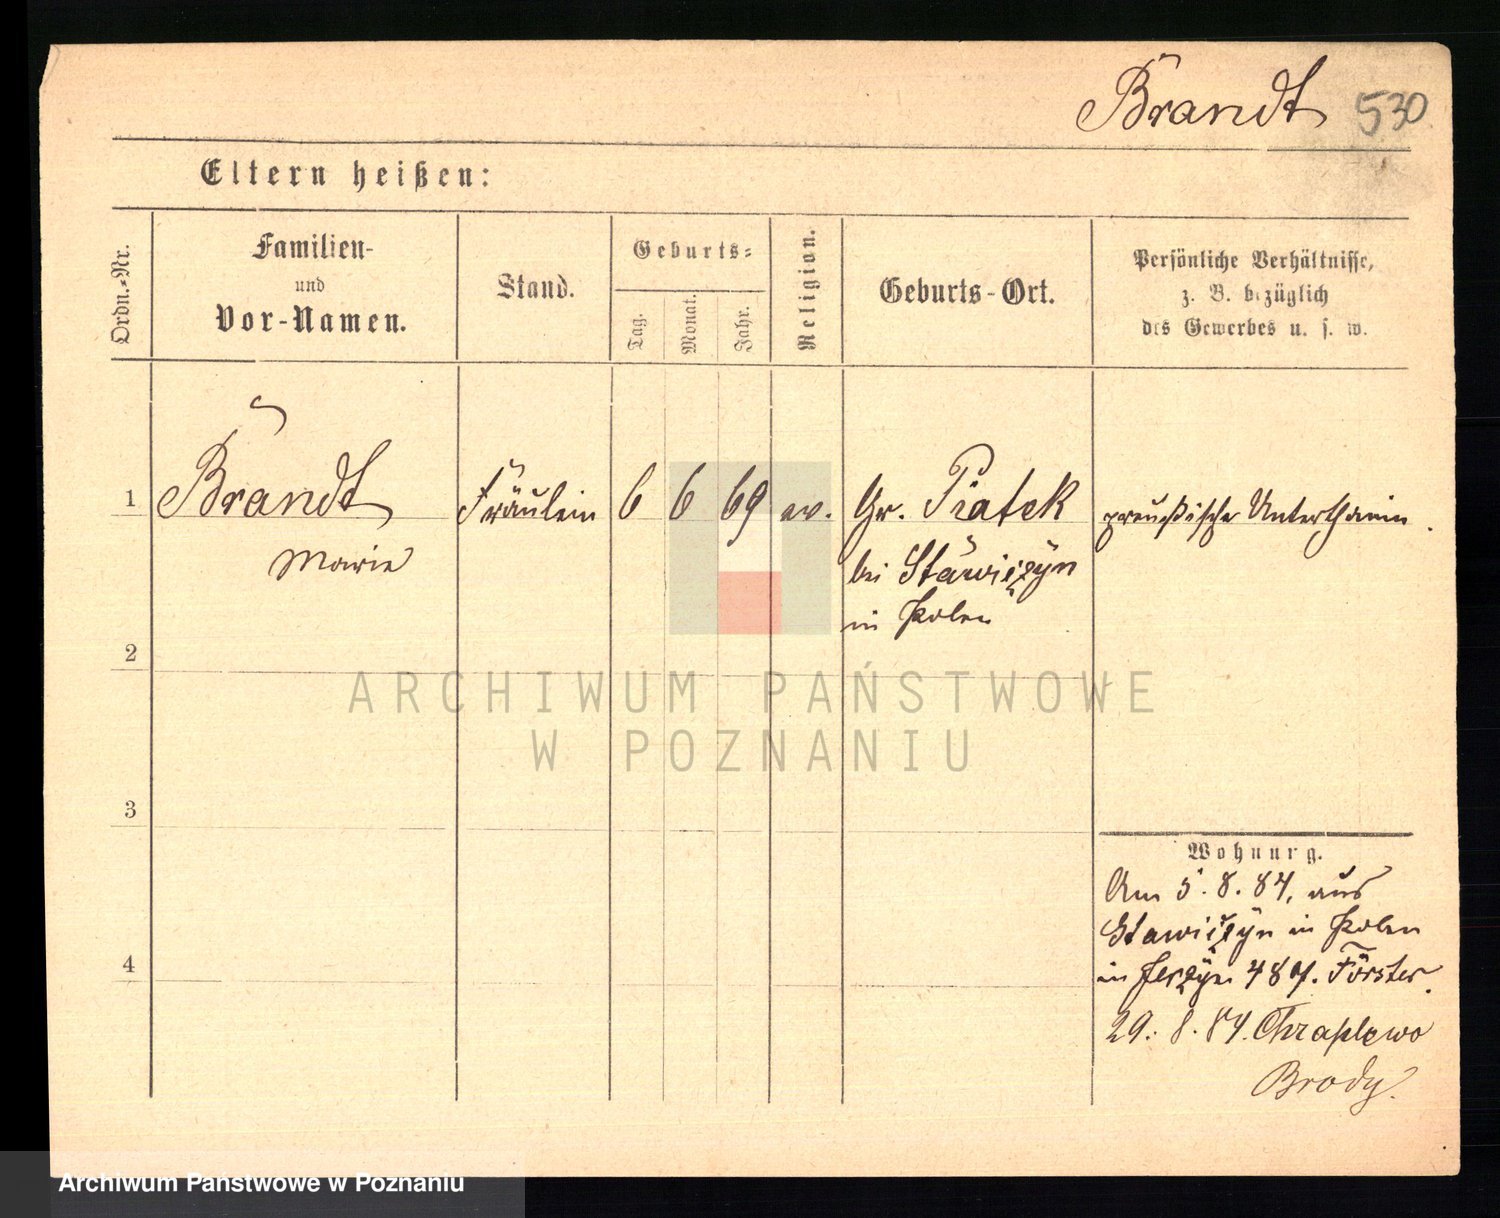 Brandt 530
Eltern heißen:
Ordn.-Nr.
Familien-
und
Vor-Namen.
Stand.
Geburts-
Tag.
Monat.
Jahr.
Religion.
Geburts-Ort.
Persönliche Verhältnisse,
z. B. bezüglich
des Gewerbes u. s. w.
1 Brandt Fräulein 6 6 69 ev. Gr. Piatek preußische Unterthanin.
Marie bei Stawiszyn
in Polen
2
ARCHIWUM PAŃSTWOWE
W POZNANIU
3
Wohnung.
Am 5. 8. 84, aus
Stawiszyn in Polen
4 in Jerzyn 48 Förster.
29. 8. 84. Chraplewo
Brody.
Archiwum Państwowe w Poznaniu